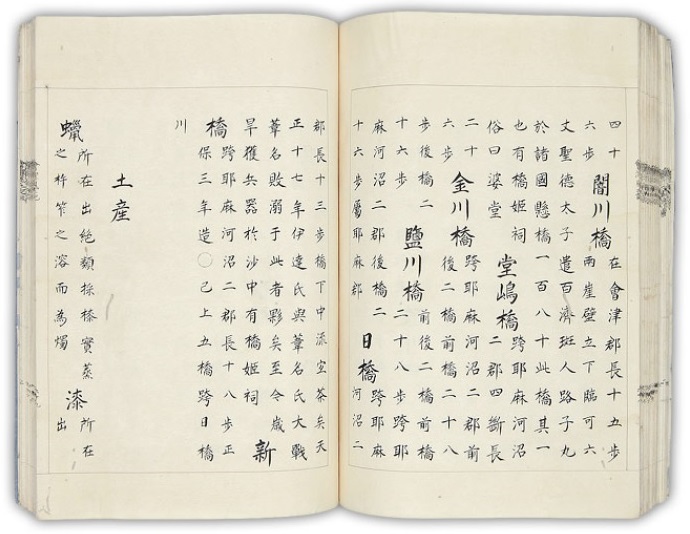 四十 闇川橋 在會津郡長十五步
六步 兩崖壁立下臨可六
丈聖德太子遣百濟斑人路子九
於諸國懸橋一百八十此橋其一
也有橋姬祠 堂嶋橋 跨耶麻河沼
俗曰婆堂 二郡四斷長
二十 金川橋 跨耶麻河沼二郡前
六步 後二橋前橋二十八
步後橋二 鹽川橋 前後二橋前橋
十六步 二十八步跨耶
麻河沼二郡後橋二 日橋 跨耶麻
十六步屬耶麻郡 河沼二
郡長十三步橋下中流室茶矣天
正十七年伊達氏與葦名氏大戰
葦名敗溺于此者夥矣至令歲
旱獲兵器於沙中有橋姬祠 新
橋 跨耶麻河沼二郡長十八步正
保三年造〇已上五橋跨日橋
川
土産
蠟 所在出絕類採榛實蒸 漆 所在
之杵笮之溶而為燭 出